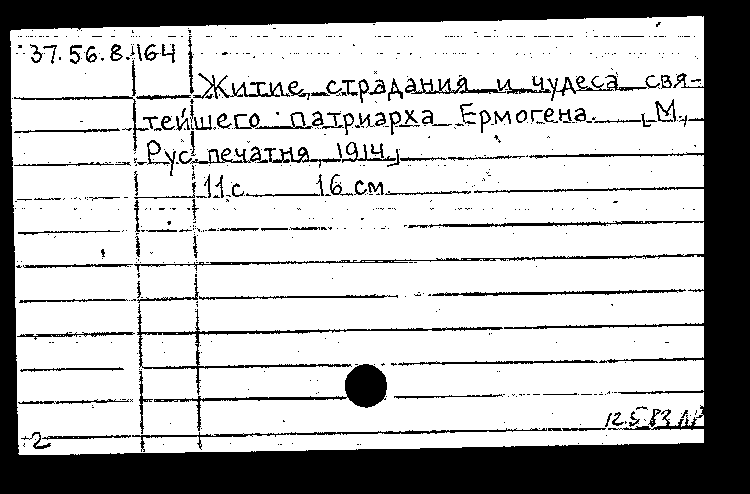 37.56.8.164
Житие, страдания и чудеса свя-
тейшего патриарха Ермогена. [М.,
Рус. печатня, 1914.]
11 с. 16 см.
12.5.83 ЛР
2